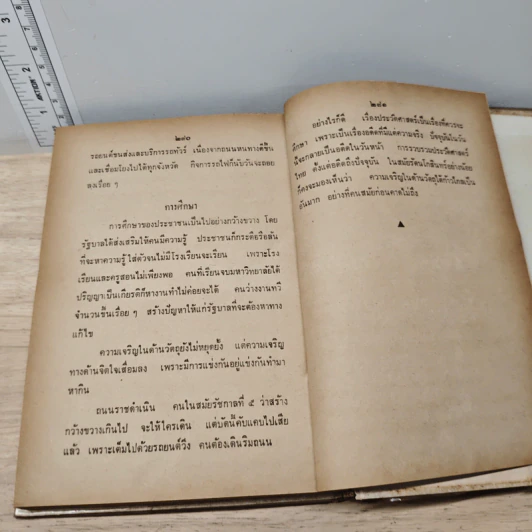 ๒๗๐
รถยนต์ขนส่งและบริการรถทัวร์ เนื่องจากถนนหนทางดีขึ้น
และเชื่อมโยงไปได้ทุกจังหวัด กิจการรถไฟก็นับวันจะถอย
ลงเรื่อย ๆ
การศึกษา
การศึกษาของประชาชนเป็นไปอย่างกว้างขวาง โดย
รัฐบาลได้ส่งเสริมให้คนมีความรู้ ประชาชนก็กระตือรือล้น
ที่จะหาความรู้ใส่ตัวจนไม่มีโรงเรียนจะเรียน เพราะโรง
เรียนและครูสอนไม่เพียงพอ คนที่เรียนจบมหาวิทยาลัยได้
ปริญญาเป็นเกียรติก็หางานทำไม่ค่อยจะได้ คนว่างงานทวี
จำนวนขึ้นเรื่อย ๆ สร้างปัญหาให้แก่รัฐบาลที่จะต้องหาทาง
แก้ไข
ความเจริญในด้านวัตถุยังไม่หยุดยั้ง แต่ความเจริญ
ทางด้านจิตใจเสื่อมลง เพราะมีการแข่งกันอยู่แข่งกันทำมา
หากิน
ถนนราชดำเนิน คนในสมัยรัชกาลที่ ๕ ว่าสร้าง
กว้างขวางเกินไป จะให้ใครเดิน แต่บัดนี้คับแคบไปเสีย
แล้ว เพราะเต็มไปด้วยรถยนต์วิ่ง คนต้องเดินริมถนน
๒๗๑
อย่างไรก็ดี เรื่องประวัติศาสตร์เป็นเรื่องที่ควรจะ
ศึกษา เพราะเป็นเรื่องอดีตที่มีแต่ความจริง ปัจจุบันในวัน
นี้จะกลายเป็นอดีตในวันหน้า การรวบรวมประวัติศาสตร์
ไทย ตั้งแต่อดีตถึงปัจจุบัน ในสมัยรัตนโกสินทร์อย่างโดย
ก็คงจะมองเห็นว่า ความเจริญในด้านวัตถุได้ก้าวไกลเป็น
อันมาก อย่างที่คนสมัยก่อนคาดไม่ถึง
3
2
1